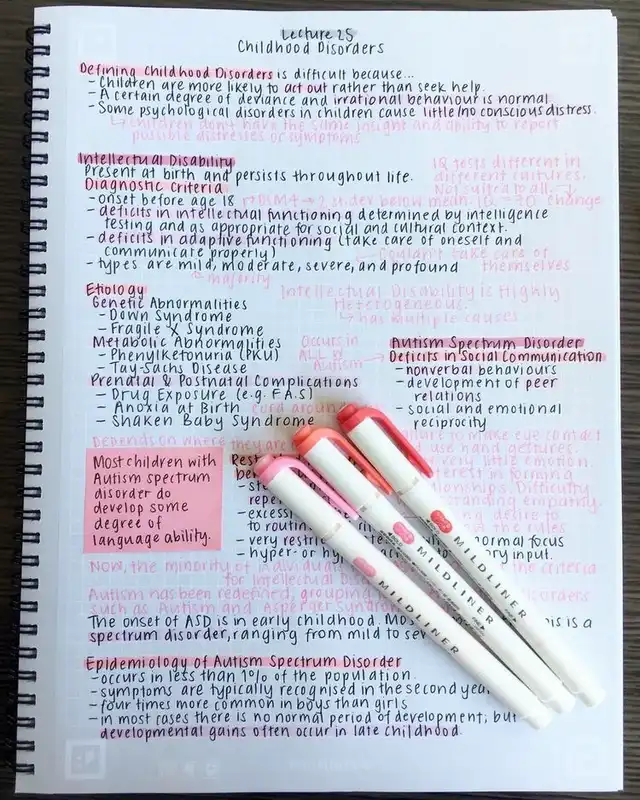 Lecture 25
Childhood Disorders
Defining Childhood Disorders is difficult because...
- Children are more likely to act out rather than seek help.
- A certain degree of deviance and irrational behaviour is normal
- Some psychological disorders in children cause little/no conscious distress.
↳ children don't have the same insight and ability to report
possible distresses or symptoms
Intellectual Disability
Present at birth and persists throughout life.
Diagnostic Criteria
- onset before age 18
- deficits in intellectual functioning determined by intelligence
testing and as appropriate for social and cultural context.
- deficits in adaptive functioning (take care of oneself and
communicate properly)
- types are mild, moderate, severe, and profound
IQ tests different in
different cultures.
Not suited to all.
change
↳ couldn't take care of
themselves
↖ majority
Etiology
Genetic Abnormalities
- Down Syndrome
- Fragile X Syndrome
Metabolic Abnormalities
- Phenylketonuria (PKU)
- Tay-Sachs Disease
Prenatal & Postnatal Complications
- Drug Exposure (e.g. F.A.S)
- Anoxia at Birth
- Shaken Baby Syndrome
cord around
Intellectual Disability is Highly
Heterogeneous.
↳ has multiple causes
Occurs in
ALL of
Autism
Autism Spectrum Disorder
Deficits in Social Communication
- nonverbal behaviours
- development of peer
relations
- social and emotional
reciprocity
Depends on where they are
to make eye contact
use hand gestures.
very little emotion
in forming
Difficulty
empathy.
Most children with
Autism spectrum
disorder do
develop some
degree of
language ability.
- excess
to routin
- very restri
normal focus
- hyper- or hy
input.
Now, the minority of individuals
the criteria
for Intellectual
Autism has been redefined, grouping
disorders
such as Autism and Asperger
The onset of ASD is in early childhood.
is a
spectrum disorder, ranging from mild to
Epidemiology of Autism Spectrum Disorder
- occurs in less than 1% of the population.
- symptoms are typically recognised in the second
- four times more common in boys than girls
- in most cases there is no normal period of development, but
developmental gains often occur in late childhood.
MILDLINER
MILDLINER
MILDLINER